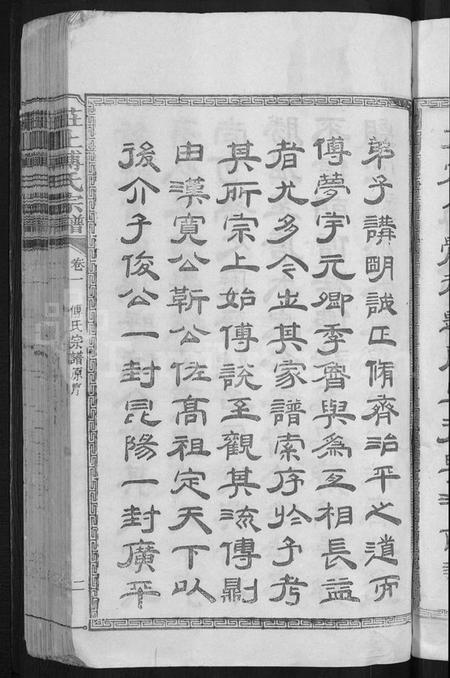 弟子講明誠正脩齊治平之道而
傅夢宇元卿季膺與為互相長益
者尤多今出其家譜索序於予考
其所宗上始傅說至觀其流傳則
由漢寬公靳公佐高祖定天下以
後介子俊公一封昆陽一封廣平
莊上傅氏宗譜
卷一
傅氏宗譜原序
二